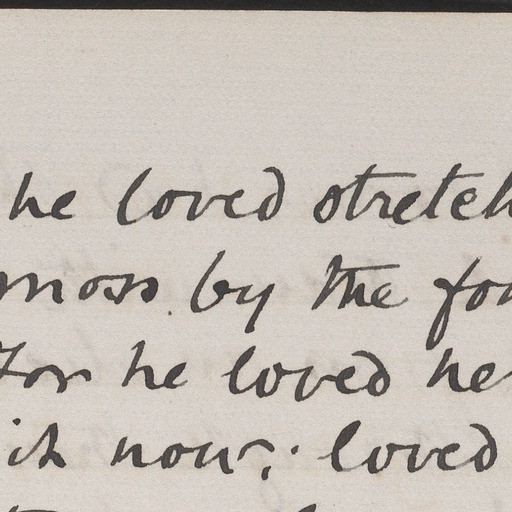 he loved stretch
moss by the fou
For he loved her
it now; loved